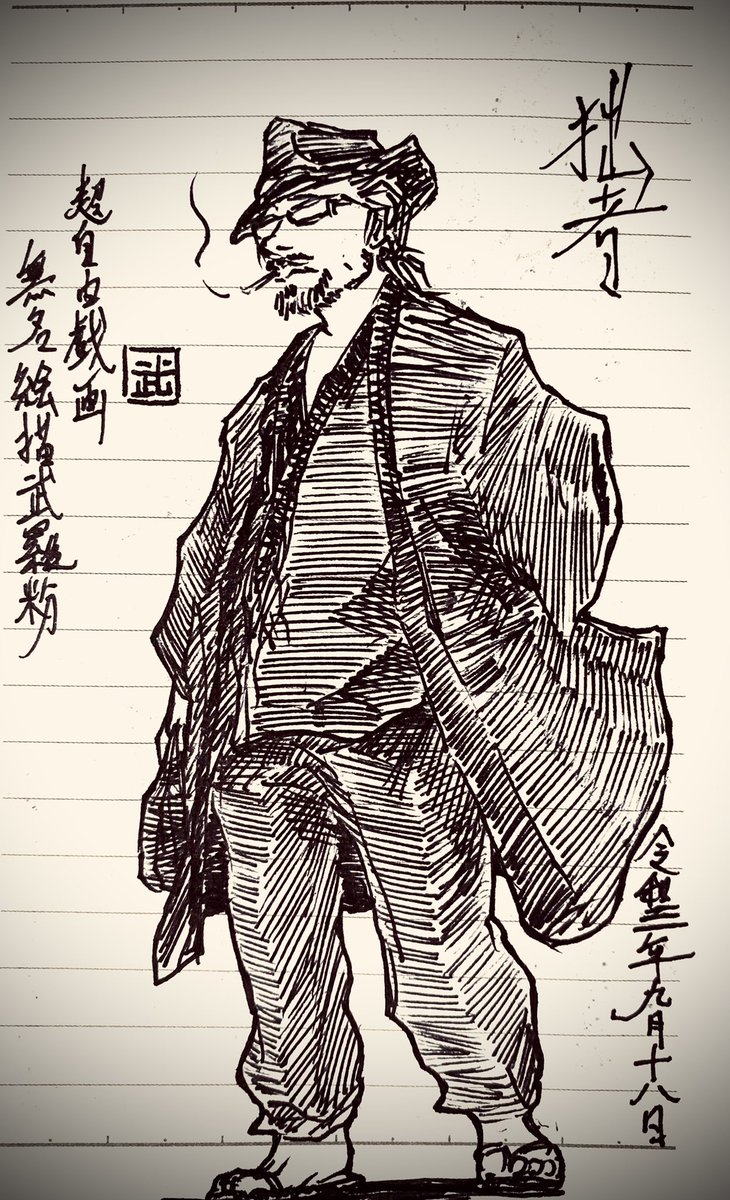 拙者
令和三年九月十八日
超自由戯画
無名絵描武羅
武